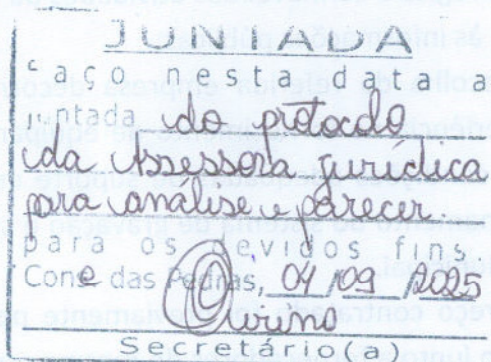 JUNTADA
Faço nesta data a
juntada do protocolo
da Assessora Jurídica
pra análise e parecer.
para os devidos fins.
Cone das Pedras, 04 /09 /2025
Secretário(a)